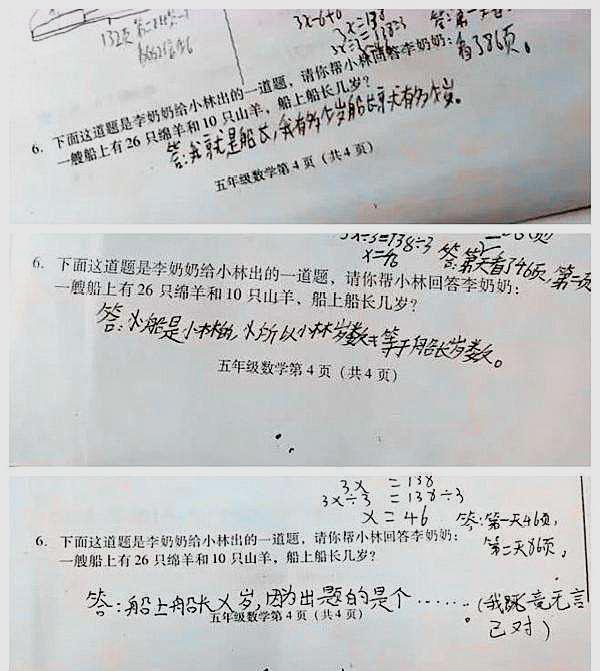 3x=138
答:第一天看
看了86页。
6. 下面这道题是李奶奶给小林出的一道题，请你帮小林回答李奶奶:
一艘船上有 26 只绵羊和 10 只山羊，船上船长几岁?
答:我就是船长,我有多少岁船长就有多少岁。
五年级数学第 4 页（共 4 页）
3x÷3=138÷3
x=46
答:第一天看了46页,第二页
6. 下面这道题是李奶奶给小林出的一道题，请你帮小林回答李奶奶:
一艘船上有 26 只绵羊和 10 只山羊、船上船长几岁?
答:船是小林的,所以小林岁数等于船长岁数。
五年级数学第 4 页（共 4 页）
3x =138
3x÷3 =138÷3
x=46
答:第一天46页,
第二天86页,
6. 下面这道题是李奶奶给小林出的一道题，请你帮小林回答李奶奶:
一艘船上有 26 只绵羊和 10 只山羊，船上船长几岁?
答:船上船长X岁,因为出题的是个……。(我既竟无言
五年级数学第 4 页（共 4 页）
已对)